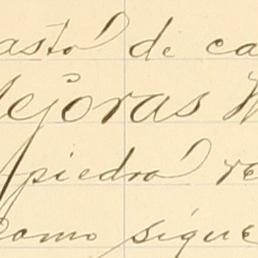 asto de ca
ejoras
piedra
como sigue